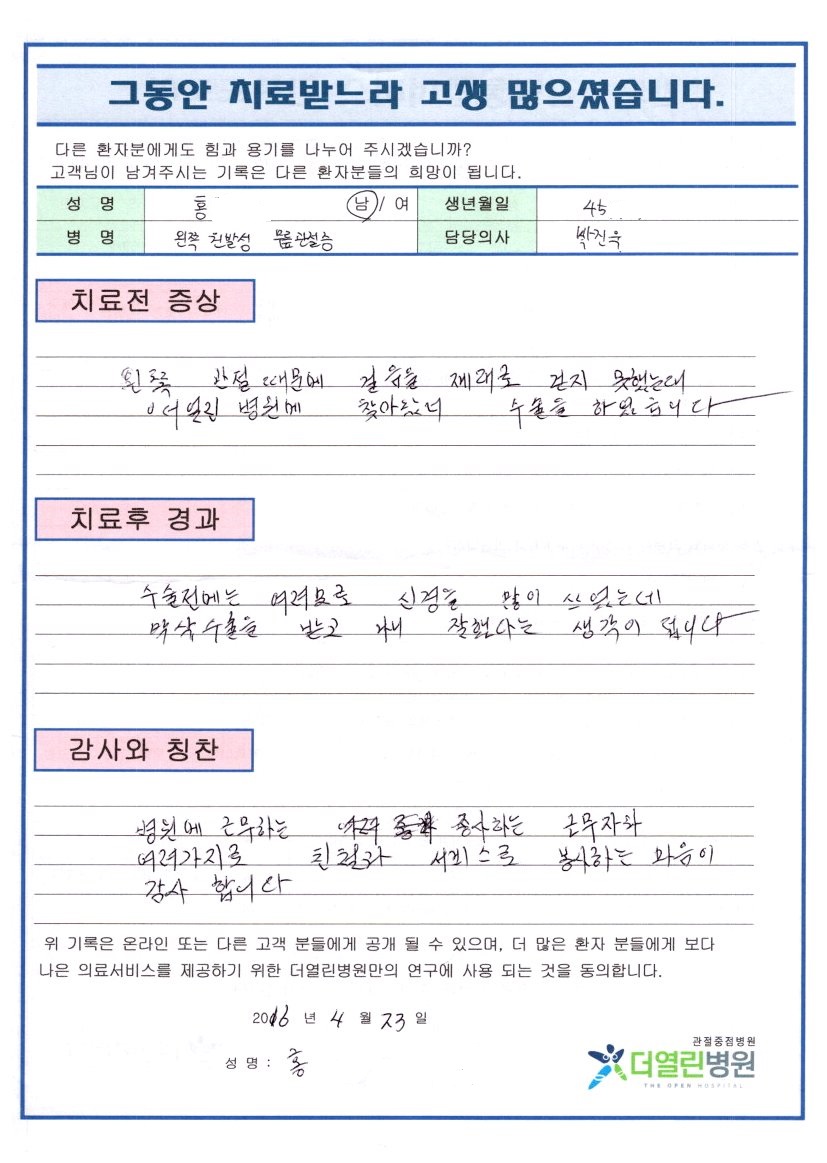 그동안 치료받느라 고생 많으셨습니다.
다른 환자분에게도 힘과 용기를 나누어 주시겠습니까?
고객님이 남겨주시는 기록은 다른 환자분들의 희망이 됩니다.
성 명 홍 남 / 여 생년월일 45
병 명 왼쪽 원발성 무릎관절증 담당의사 박진욱
치료전 증상
왼쪽 관절 때문에 걸음을 제대로 걷지 못했는데
더열린 병원에 찾아 수술을 하였습니다
치료후 경과
수술전에는 여려모로 신경을 많이 쓰었는데
막삭수술을 받고 나니 잘했다는 생각이 됩니다
감사와 칭찬
병원에 근무하는 종사하는 근무자와
여려가지로 친절과 서비스로 봉사하는 마음이
감사 합니다
위 기록은 온라인 또는 다른 고객 분들에게 공개 될 수 있으며, 더 많은 환자 분들에게 보다
나은 의료서비스를 제공하기 위한 더열린병원만의 연구에 사용 되는 것을 동의합니다.
2016 년 4 월 23 일
성 명 : 홍
관절중점병원
더열린병원
THE OPEN HOSPITAL